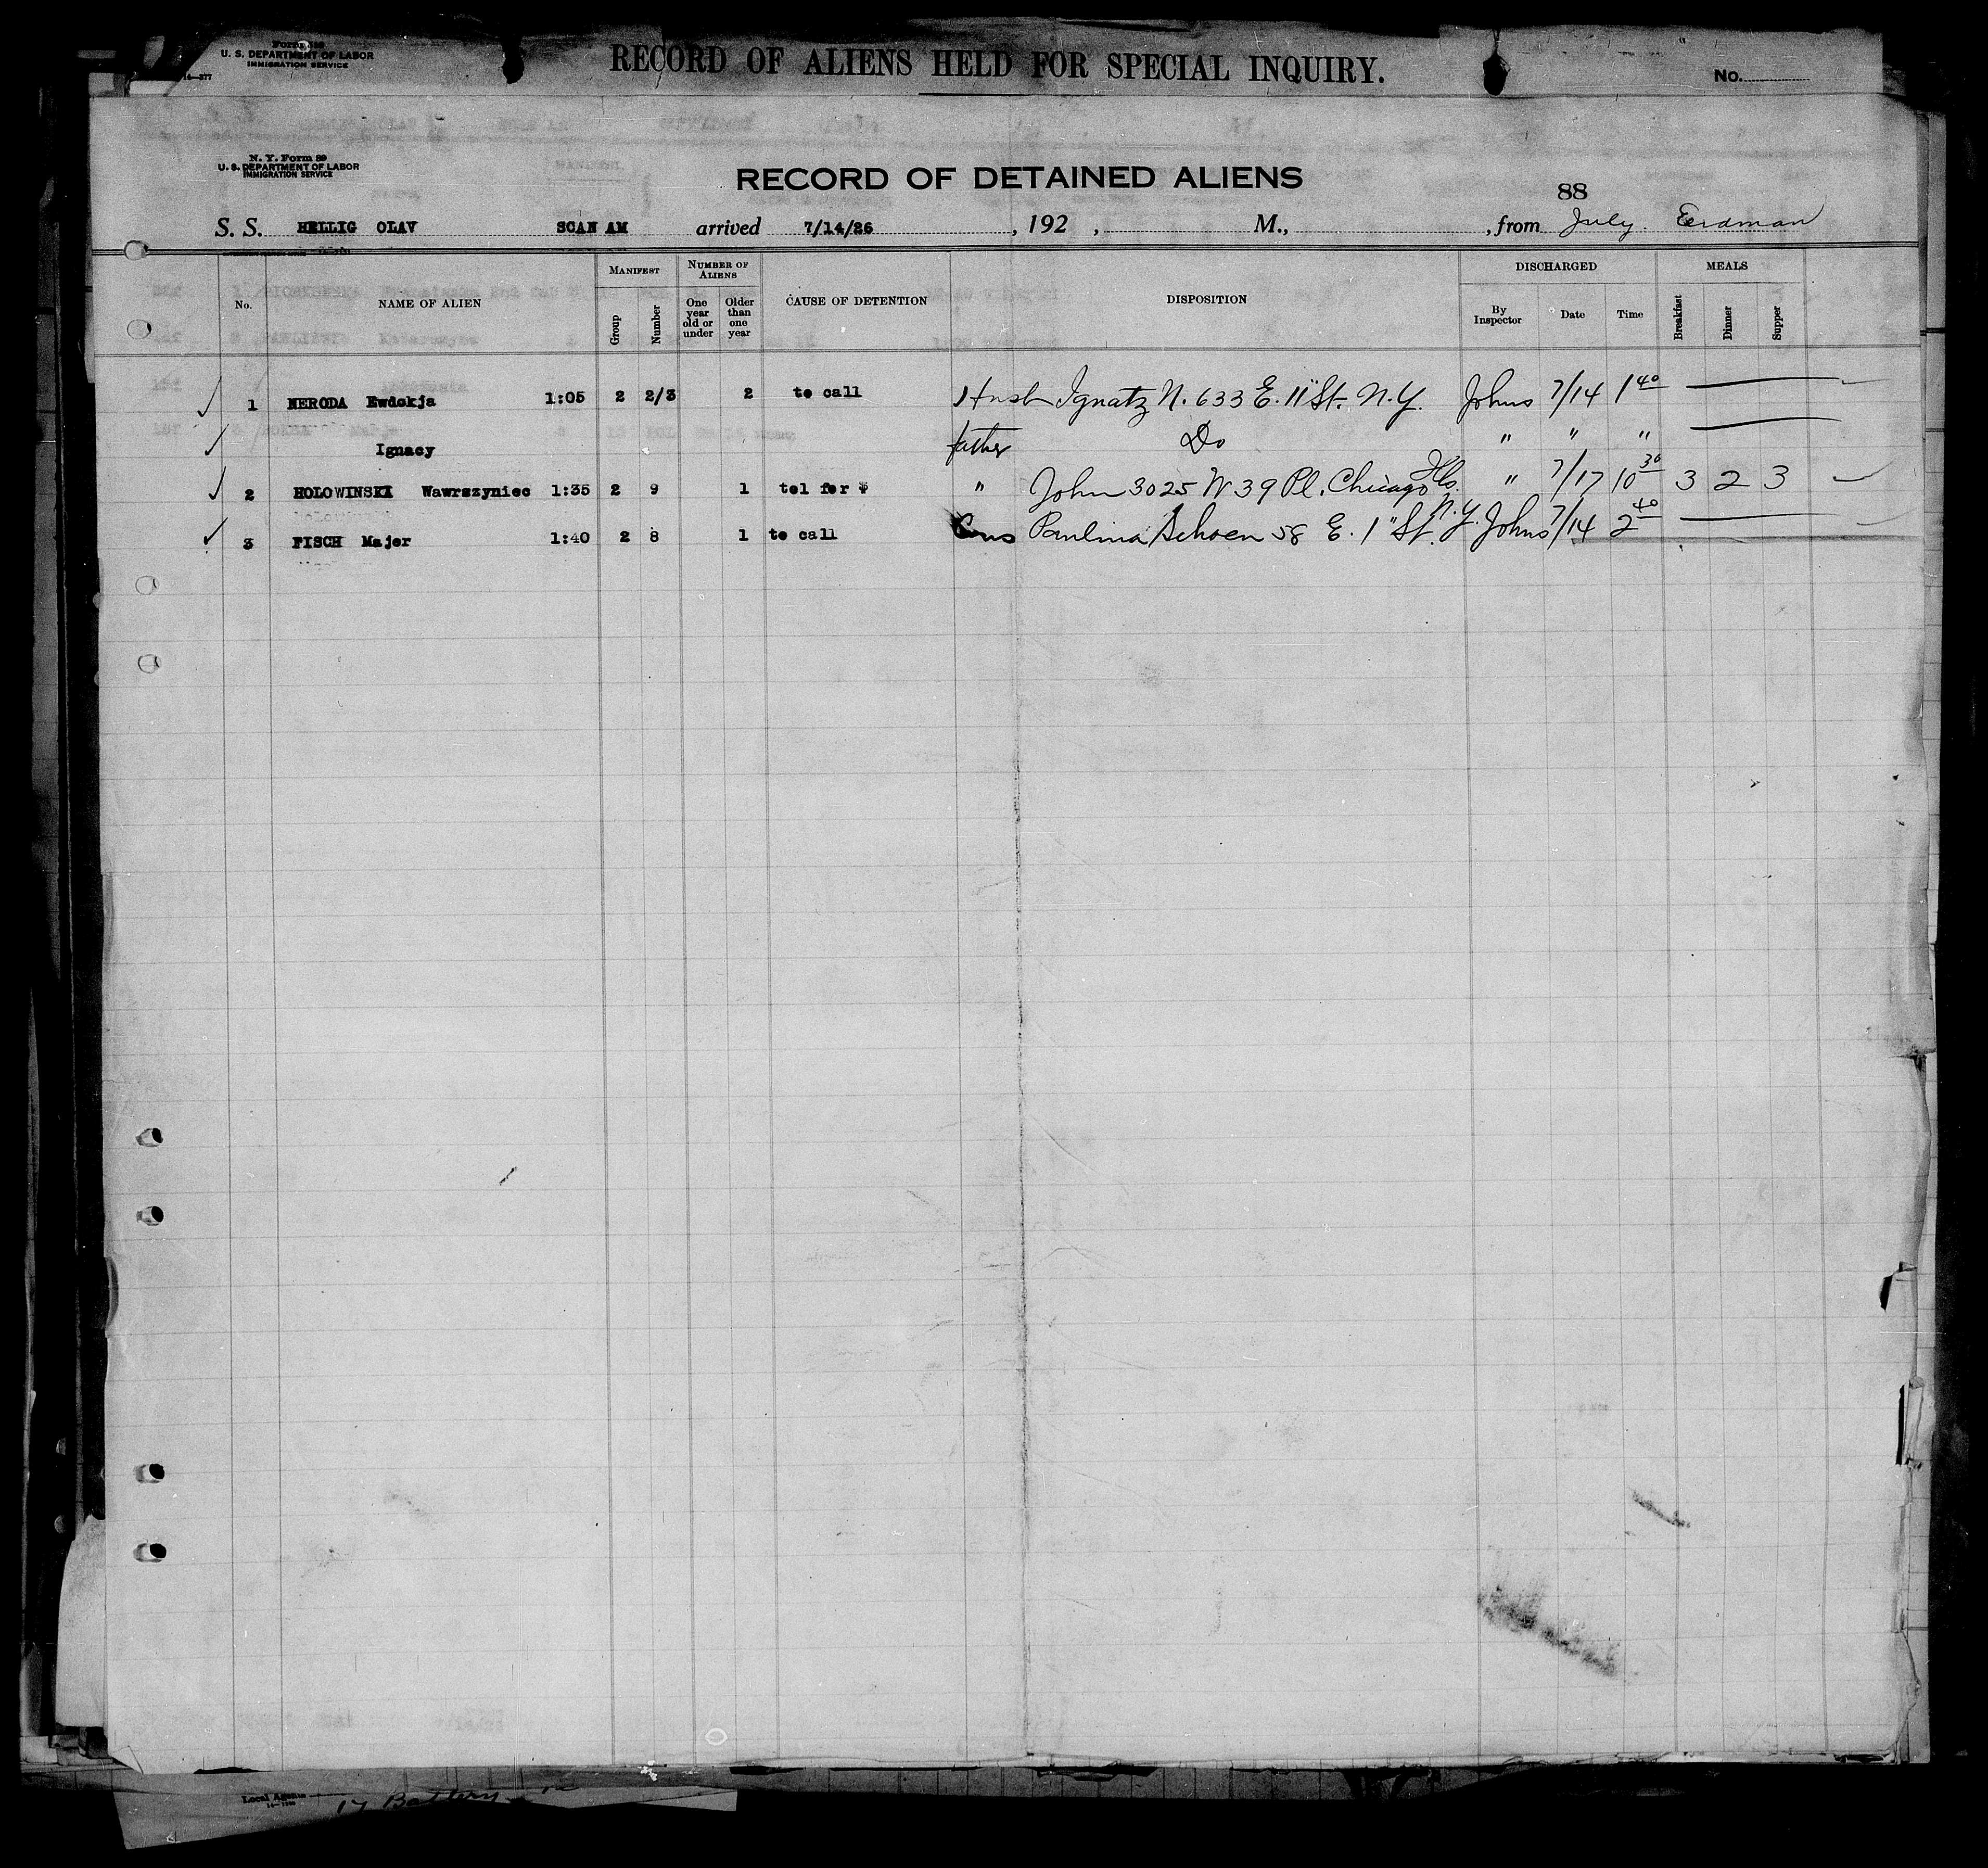 Form 
U. S. DEPARTMENT OF LABOR
IMMIGRATION SERVICE
RECORD OF ALIENS HELD FOR SPECIAL INQUIRY.
No.
N. Y. Form 89
U. S. DEPARTMENT OF LABOR
IMMIGRATION SERVICE
RECORD OF DETAINED ALIENS
88
S. S. HELLIG OLAV SCAN AM arrived 7/14/26 , 192 , M., , from July. Erdman
No. NAME OF ALIEN MANIFEST Group Number NUMBER OF ALIENS One year old or under Older than one year CAUSE OF DETENTION DISPOSITION DISCHARGED By Inspector Date Time MEALS Breakfast Dinner Supper
1 NERODA Ewdokja 1:05 2 2/3 2 to call Husb Ignatz N. 633 E. 11" St. N.Y. Johns 7/14 1 40
Ignacy father Do " " "
2 HOLOWINSKI Wawrszyniec 1:35 2 9 1 tel for $ " John 3025 W 39 Pl. Chicago Ills. " 7/17 10 30 3 2 3
3 FISCH Majer 1:40 2 8 1 to call Cous Paulina Schoen 58 E. 1" St. N.Y. Johns 7/14 2 40
Local Agents
17 Battery